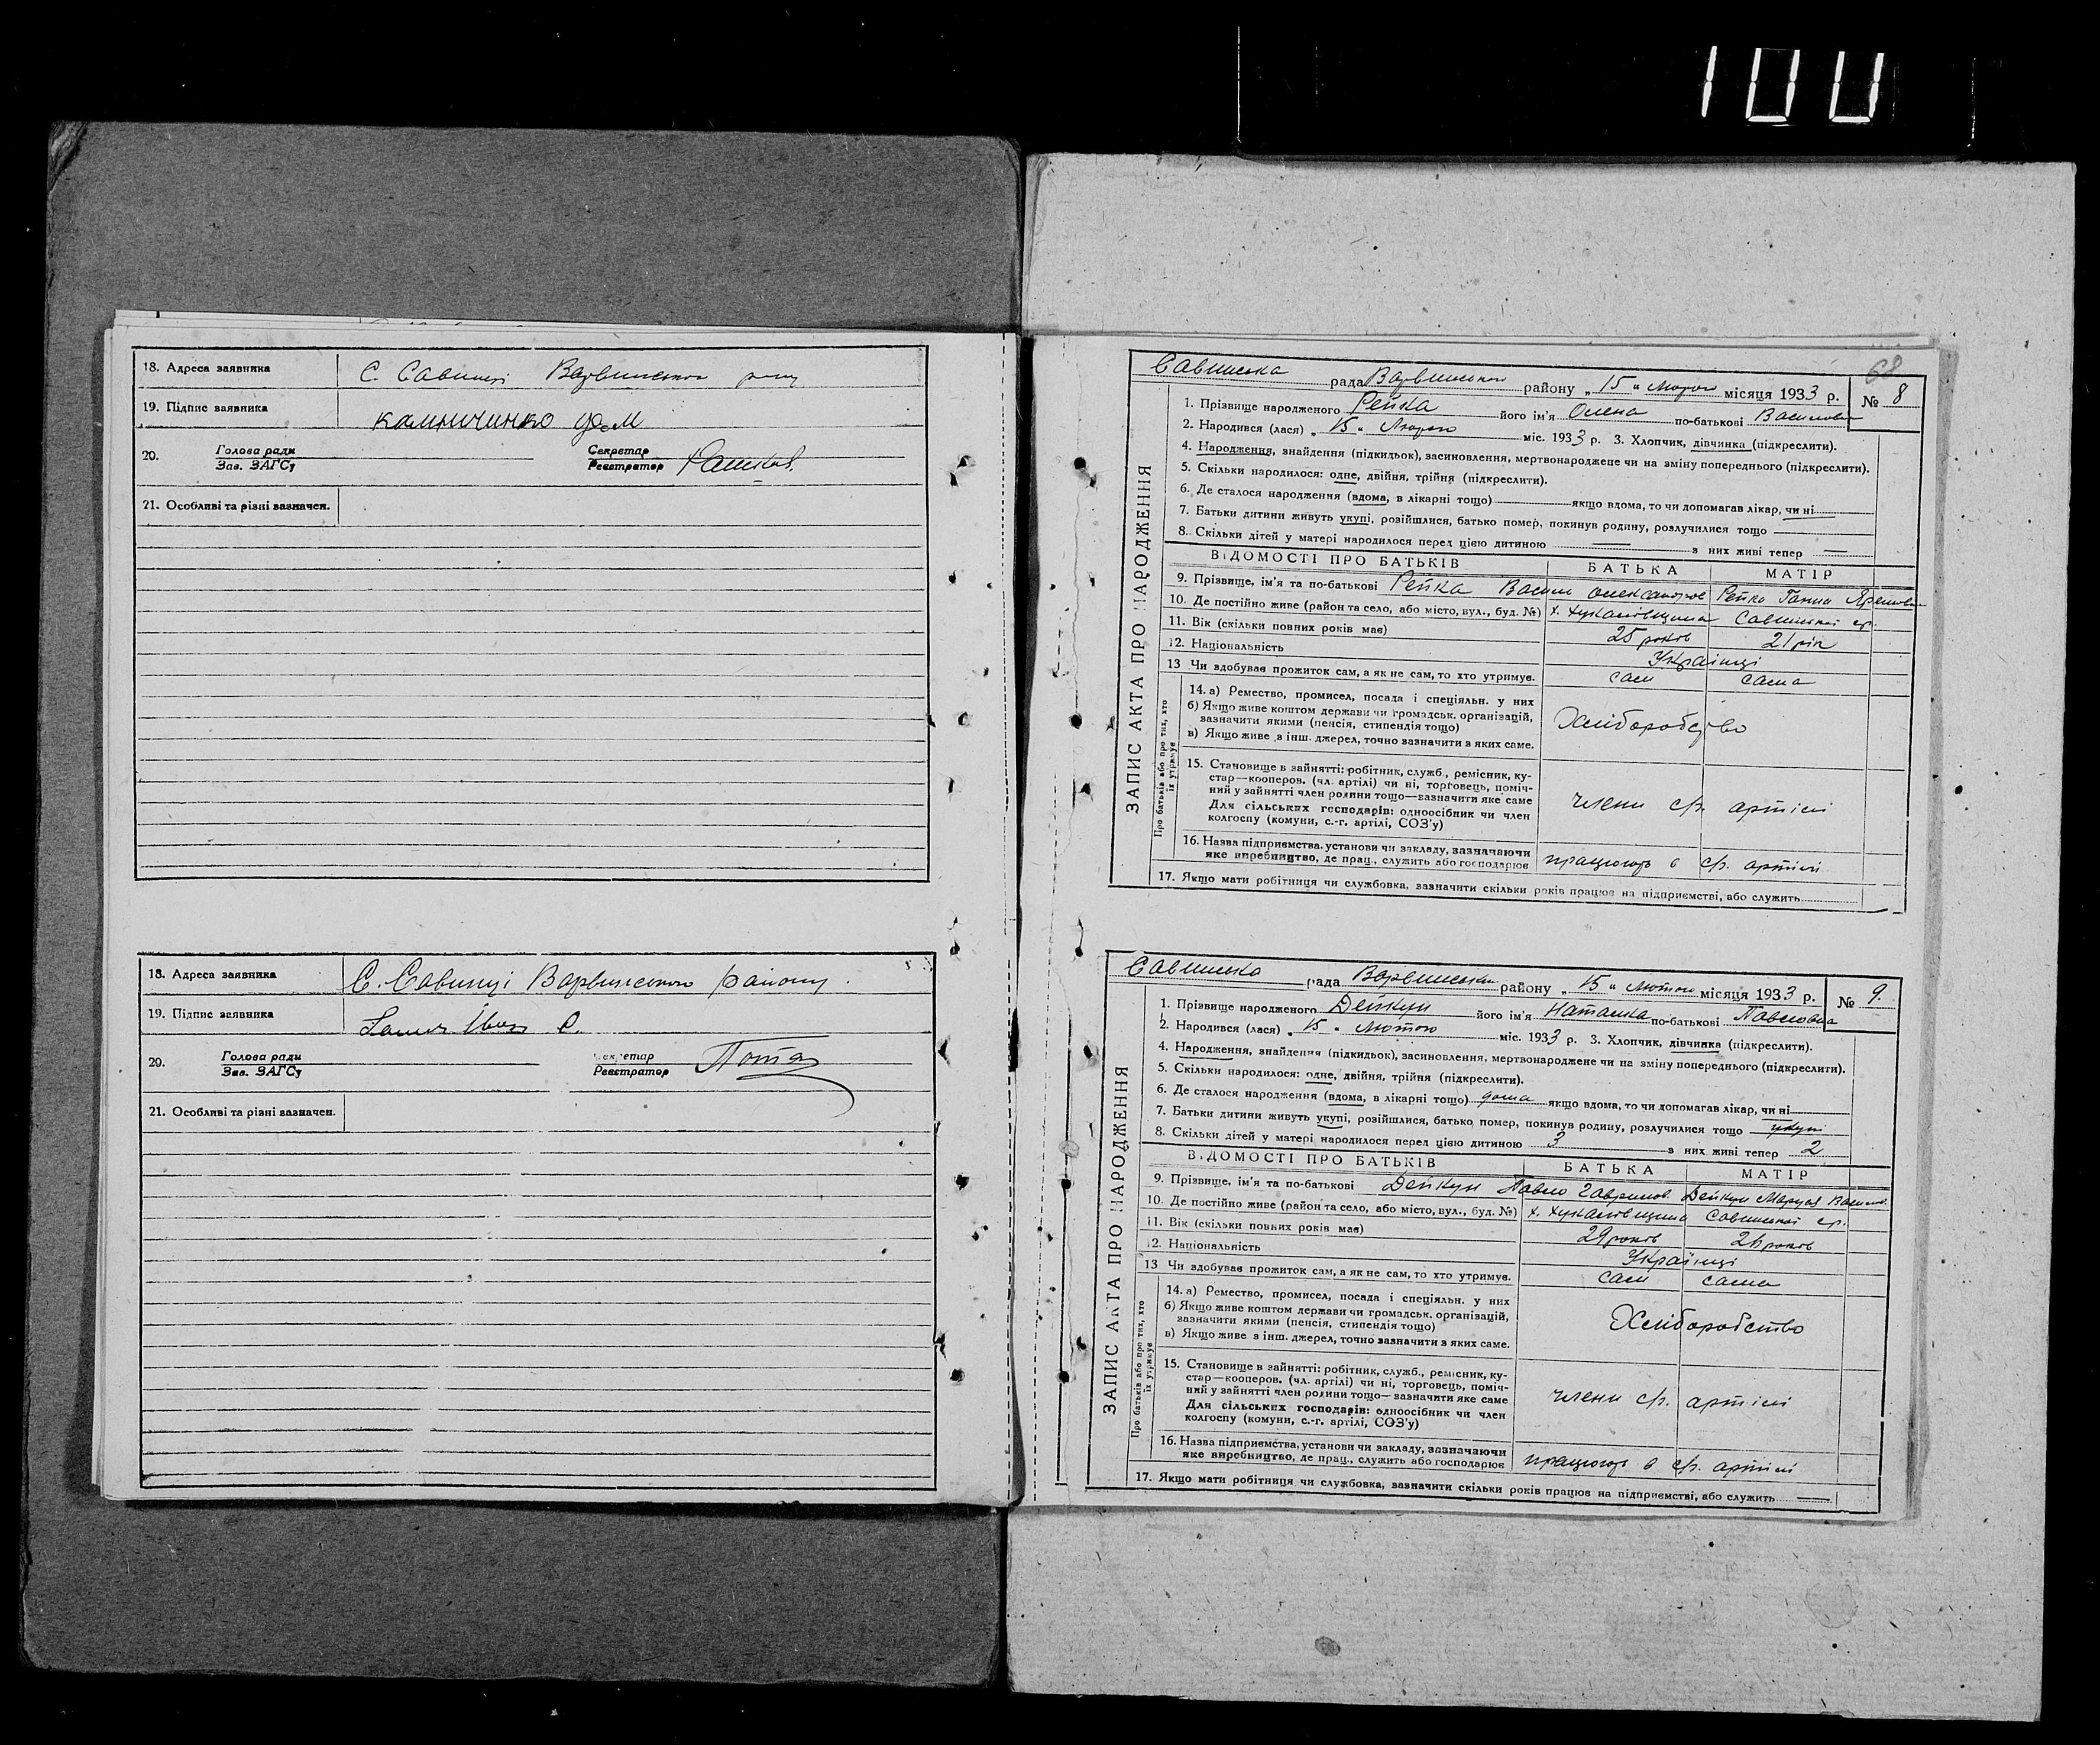 100
18. Адреса заявника С. Савинці Варвинського р-ну
19. Підпис заявника
20. Голова ради Зав. ЗАГСу Секретар Реєстратор
21. Особливі та різні зазначен.
18. Адреса заявника С. Савинці Варвинського району.
19. Підпис заявника
20. Голова ради Зав. ЗАГСу Секретар Реєстратор
21. Особливі та різні зазначен.
68
Савинська рада Варвинського району „15" Лютого місяця 1933 р. № 8
ЗАПИС АКТА ПРО НАРОДЖЕННЯ
1. Прізвище народженого Рейка його ім'я Олена по-батькові Василівна
2. Народився (лася) „15" Лютого міс. 1933 р. 3. Хлопчик, дівчинка (підкреслити).
4. Народження, знайдення (підкидьок), засиновлення, мертвонароджене чи на зміну попереднього (підкреслити).
5. Скільки народилося: одне, двійня, трійня (підкреслити).
6. Де сталося народження (вдома, в лікарні тощо) якщо вдома, то чи допомагав лікар, чи ні
7. Батьки дитини живуть укупі, розійшлися, батько помер, покинув родину, розлучилися тощо —
8. Скільки дітей у матері народилося перед цією дитиною — з них живі тепер —
ВІДОМОСТІ ПРО БАТЬКІВ БАТЬКА МАТІР
9. Прізвище, ім'я та по-батькові Рейка Василь Олександров Рейка Ганна
10. Де постійно живе (район та село, або місто, вул., буд. №) х. Хукалівщина Савинської с/р.
11. Вік (скільки повних років має) 25 років 21 рік
12. Національність Українці
13 Чи здобуває прожиток сам, а як не сам, то хто утримує. сам сама
Про батьків або про тих, хто їх утримує
14. а) Ремество, промисел, посада і спеціяльн. у них
б) Якщо живе коштом держави чи громадськ. організацій,
зазначити якими (пенсія, стипендія тощо)
в) Якщо живе з інш. джерел, точно зазначити з яких саме.
Хліборобство
15. Становище в зайнятті: робітник, служб., ремісник, ку-
стар—кооперов. (чл. артілі) чи ні, торговець, поміч-
ний у зайнятті член родини тощо—зазначити яке саме
Для сільських господарів: одноосібник чи член
колгоспу (комуни, с.-г. артілі, СОЗ'у)
члени с/г. артілі
16. Назва підприємства, установи чи закладу, зазначаючи
яке виробництво, де прац., служить або господарює працюють в с/г. артілі
17. Якщо мати робітниця чи службовка, зазначити скільки років працює на підприємстві, або служить
Савинська рада Варвинського району „15" Лютого місяця 1933 р. № 9.
ЗАПИС АКТА ПРО НАРОДЖЕННЯ
1. Прізвище народженого Дейкун його ім'я Наталка по-батькові Павловна
2. Народився (лася) „15" Лютого міс. 1933 р. 3. Хлопчик, дівчинка (підкреслити).
4. Народження, знайдення (підкидьок), засиновлення, мертвонароджене чи на зміну попереднього (підкреслити).
5. Скільки народилося: одне, двійня, трійня (підкреслити).
6. Де сталося народження (вдома, в лікарні тощо) дома якщо вдома, то чи допомагав лікар, чи ні
7. Батьки дитини живуть укупі, розійшлися, батько помер, покинув родину, розлучилися тощо укупі
8. Скільки дітей у матері народилося перед цією дитиною 3 з них живі тепер 2
ВІДОМОСТІ ПРО БАТЬКІВ БАТЬКА МАТІР
9. Прізвище, ім'я та по-батькові Дейкун Павло Гаврилов. Дейкун Маруся Василів.
10. Де постійно живе (район та село, або місто, вул., буд. №) х. Хукалівщина Савинської с/р.
11. Вік (скільки повних років має) 29 років 26 років
12. Національність Українці
13 Чи здобуває прожиток сам, а як не сам, то хто утримує. сам сама
Про батьків або про тих, хто їх утримує
14. а) Ремество, промисел, посада і спеціяльн. у них
б) Якщо живе коштом держави чи громадськ. організацій,
зазначити якими (пенсія, стипендія тощо)
в) Якщо живе з інш. джерел, точно зазначити з яких саме.
Хліборобство
15. Становище в зайнятті: робітник, служб., ремісник, ку-
стар—кооперов. (чл. артілі) чи ні, торговець, поміч-
ний у зайнятті член родини тощо—зазначити яке саме
Для сільських господарів: одноосібник чи член
колгоспу (комуни, с.-г. артілі, СОЗ'у)
члени с/г. артілі
16. Назва підприємства, установи чи закладу, зазначаючи
яке виробництво, де прац., служить або господарює працюють в с/г. артілі
17. Якщо мати робітниця чи службовка, зазначити скільки років працює на підприємстві, або служить —